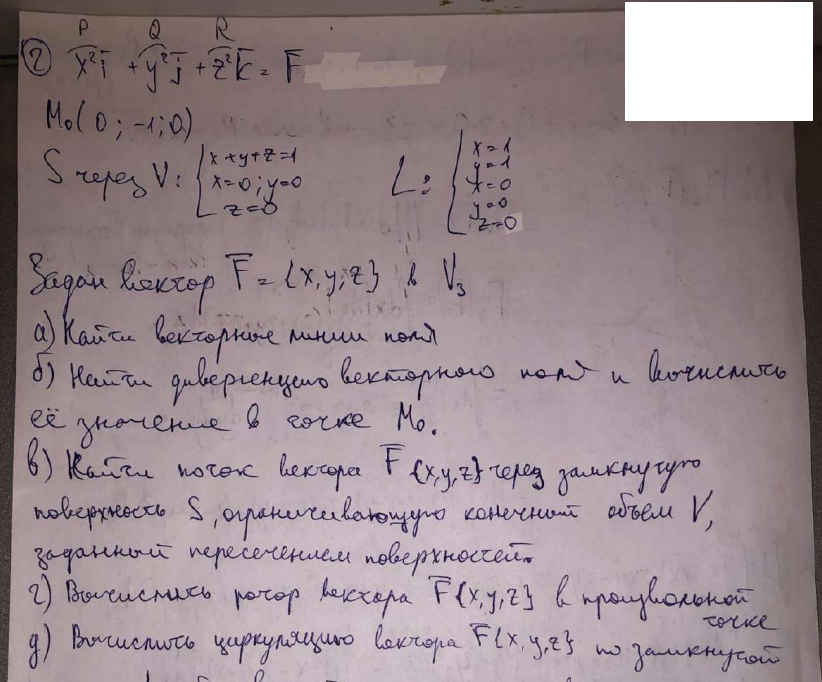 P Q R
② x²i̅ + y²j̅ + z²k̅ = F̅
M₀(0; -1; 0)
S через V: { x+y+z=1 L: { x=1
x=0; y=0 y=1
z=0 x=0
y=0
z=0
Задан вектор F̅ = {x, y, z} в V₃
а) Найти векторные линии поля
б) Найти дивергенцию векторного поля и вычислить
её значение в точке M₀.
в) Найти поток вектора F̅ {x,y,z} через замкнутую
поверхность S, ограничивающую конечный объём V,
заданный пересечением поверхностей.
г) Вычислить ротор вектора F̅{x,y,z} в произвольной
точке
д) Вычислить циркуляцию вектора F̅{x,y,z} по замкнутой